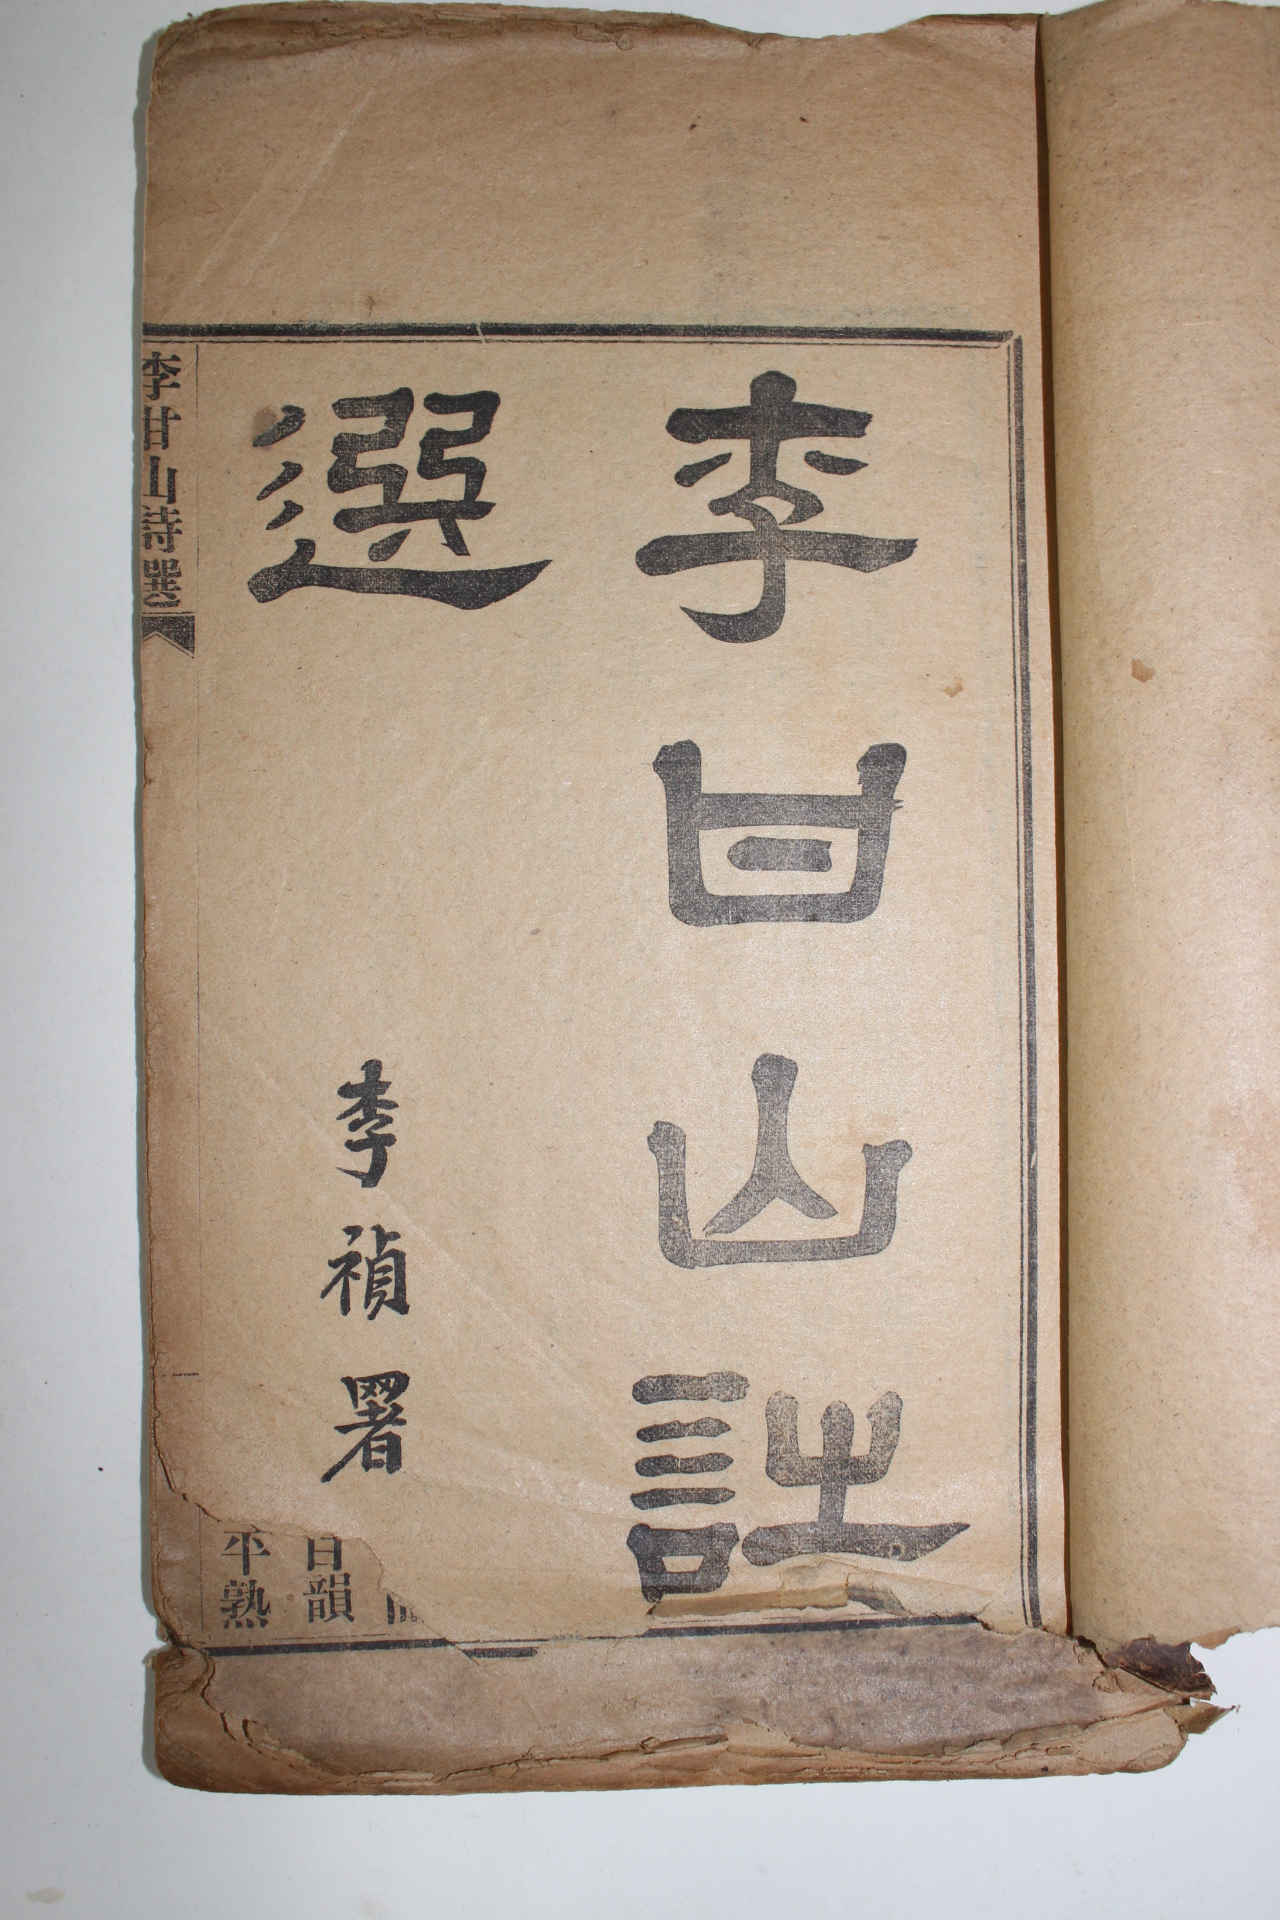 李甘山詩
選
李禎署
李甘山詩選
韻
平熟